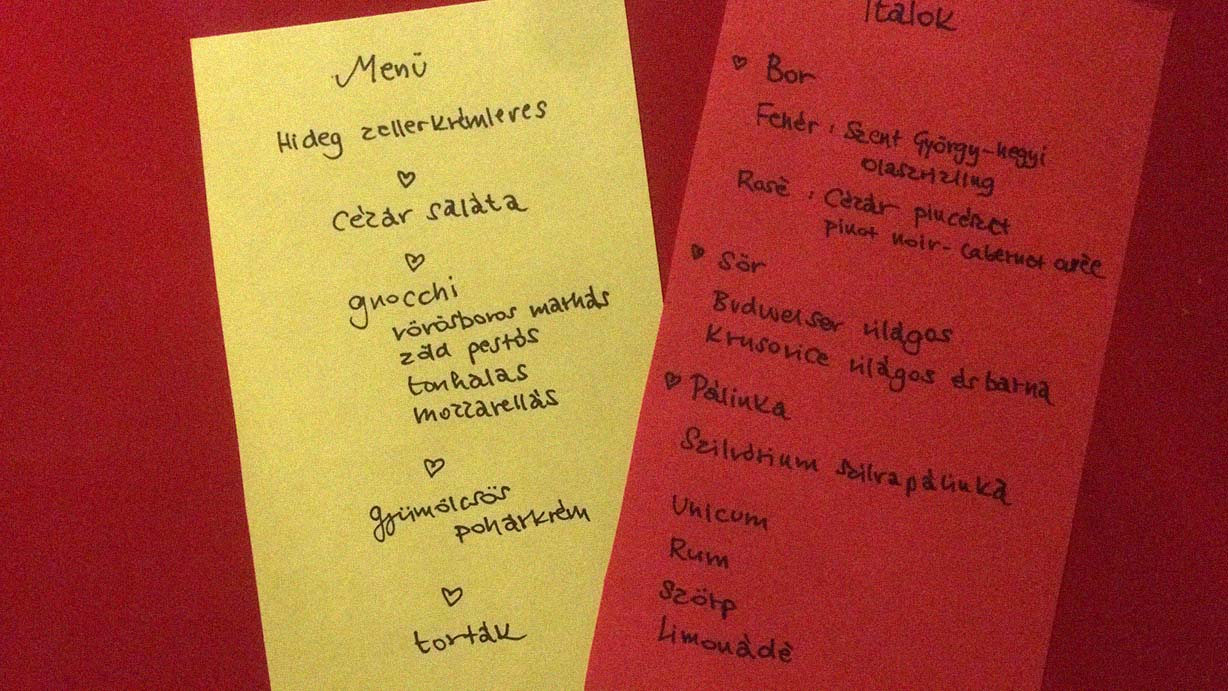 Menü
Hideg zellerkrémleves
Cézár saláta
gnocchi
vörösboros marhás
zöld pestós
tonhalas
mozzarellás
gyümölcsös
pohárkrém
torták
Italok
Bor
Fehér: Szent György-hegyi
olaszrizling
Rosé: Cézár pincészet
pinot noir - cabernet
Sör
Budweiser világos
Krusovice világos és barna
Pálinka
Szilvórium szilvapálinka
Unicum
Rum
Szörp
Limonàdè